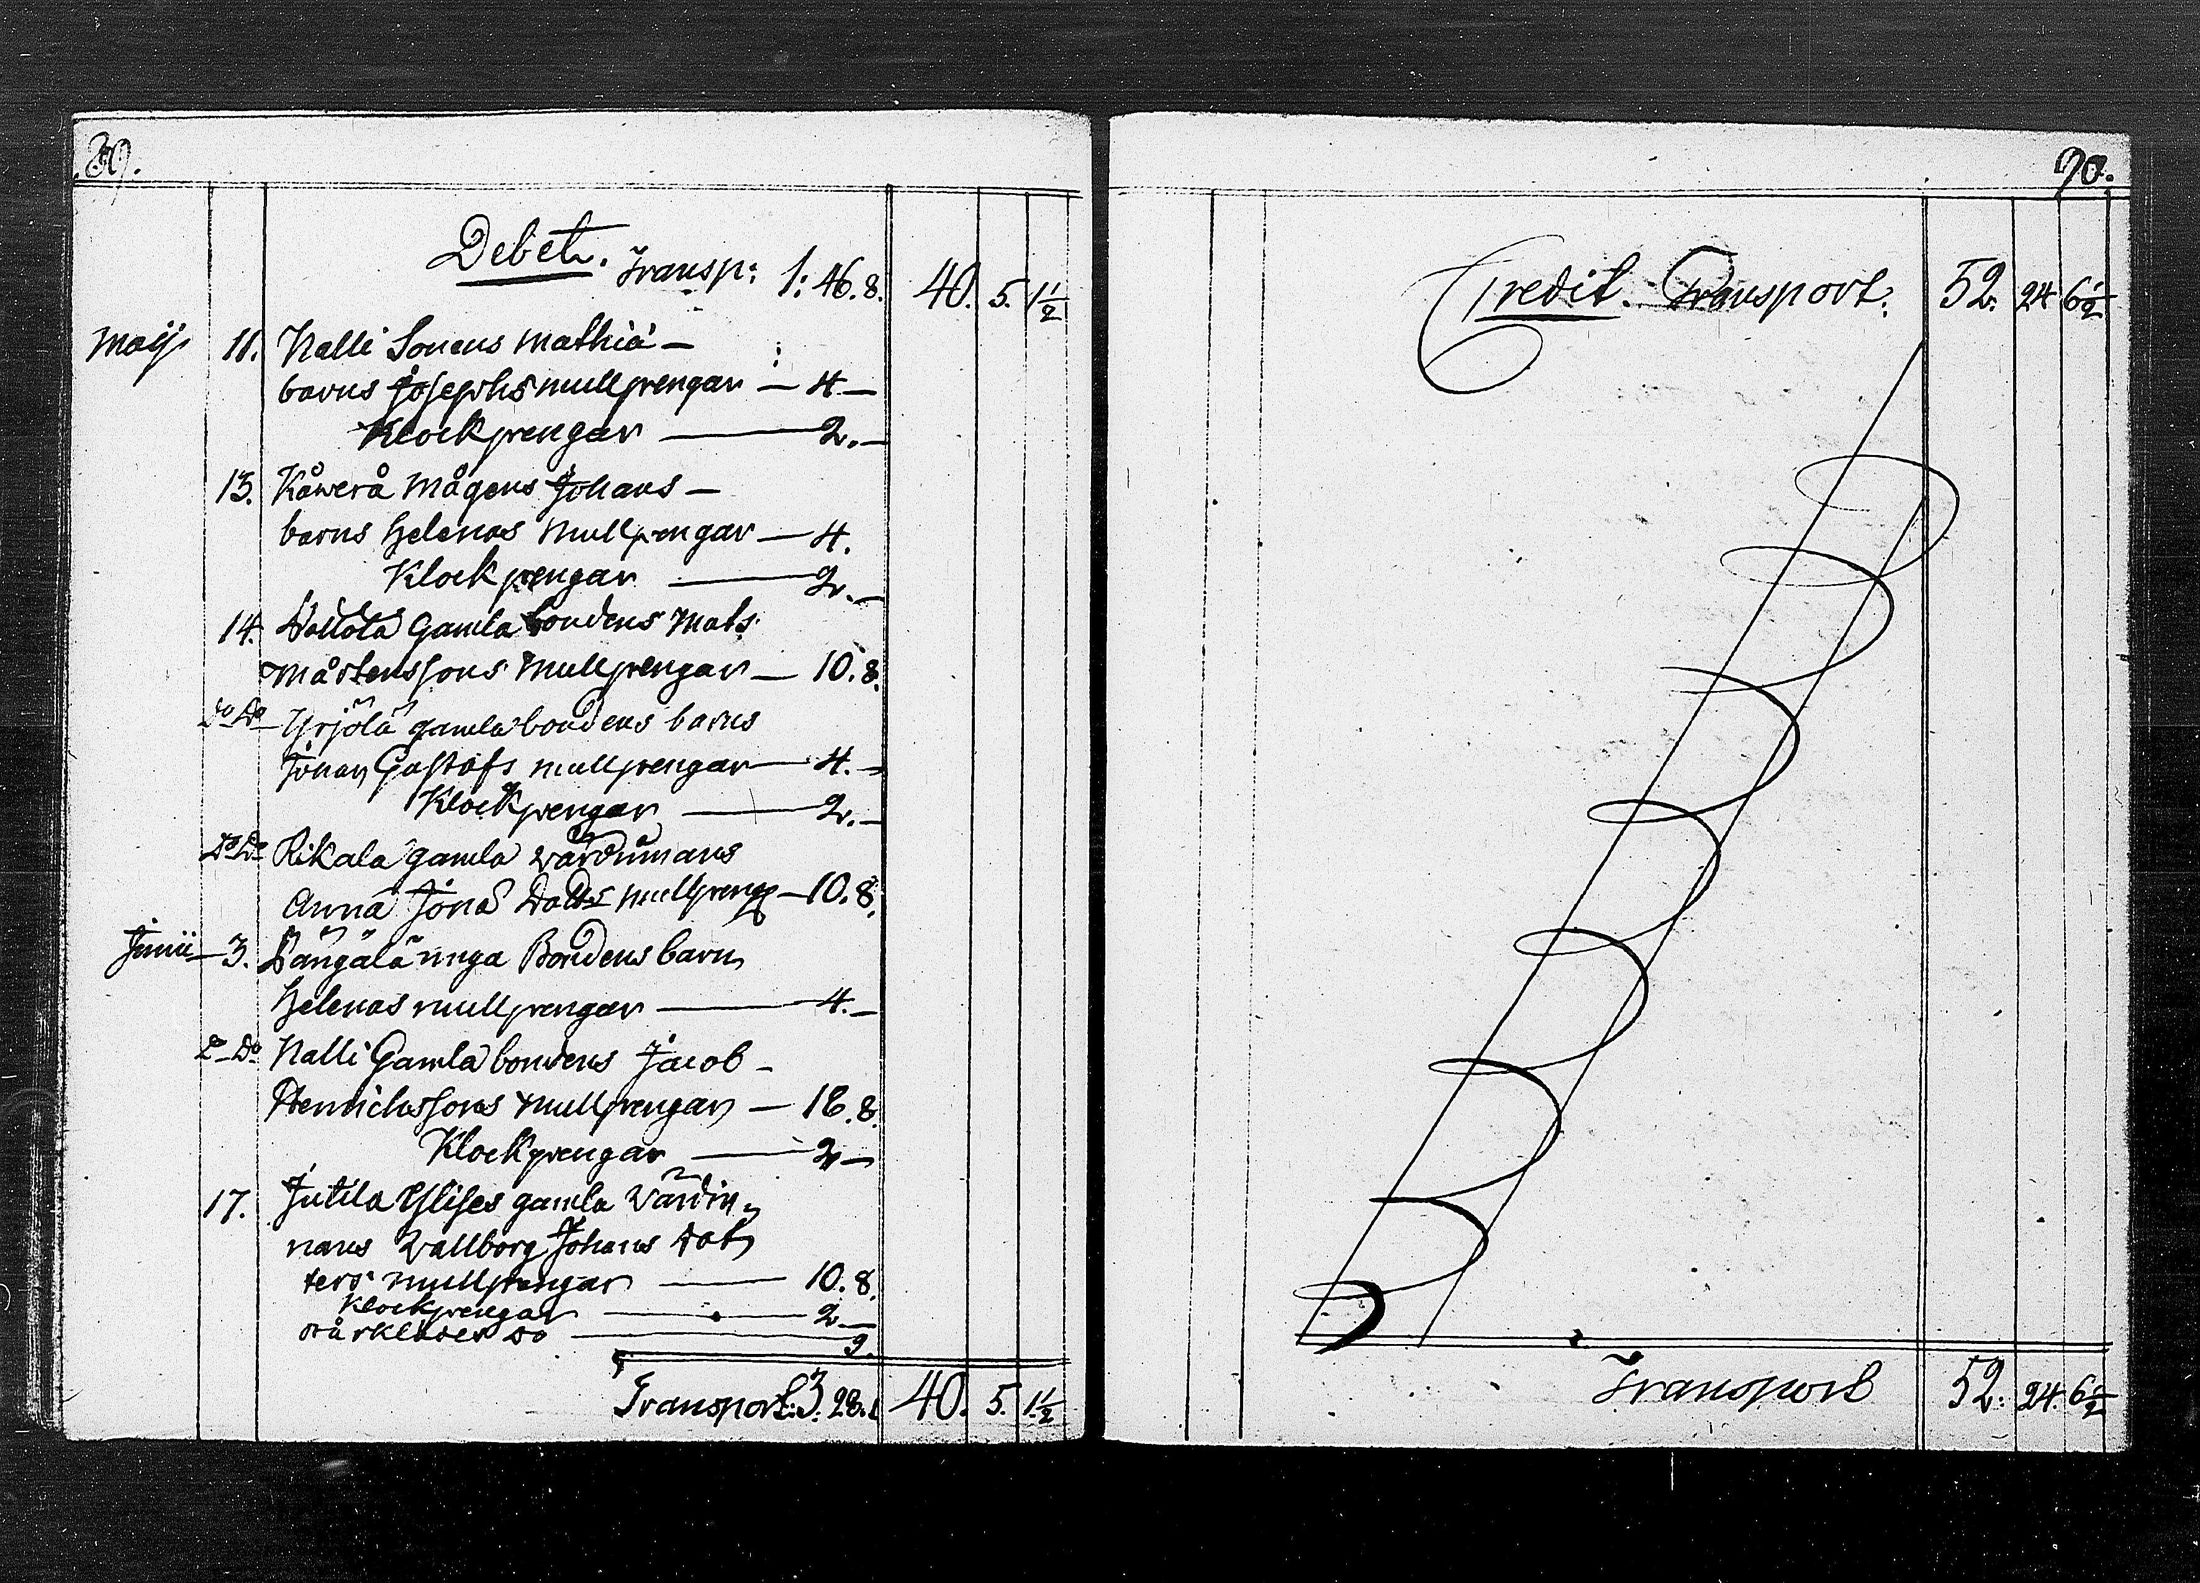 89.
Debet. Transp: 1: 46. 8. 40. 5. 1 1/2
Maij 11. Nalli Sonens Mathiæ
barns Josephs mullpengar — 4 —
Klockpengar — 2. —
13. Kåwerå Mågens Johans —
barns Helenas Mullpengar — 4.
Klockpengar — 2. —
14. Gamla bondens Mats
Mårtenssons Mullpengar — 10. 8.
Do Do Yrjölä gamla bondens barns
Johan Gustafs mullpengar — 4. —
Klockpengar — 2. —
Do Do Rikala gamla
Anna Jonæ Dotts mullpeng — 10. 8.
Junii — 3. Längälä unga Bondens barn
Helenas mullpengar — 4. —
Do Do Nalli Gamla bondens Jacob —
Henrichssons Mullpengar — 16. 8.
Klockpengar — 2 —
17. Jutila Ylises gamla Värdin„
nans Wallborg Johans Dot„
ters mullpengar — 10. 8.
Klockpengar — 2 —
Bårklädes do — 9.
Transport: 3. 28. 1 40. 5. 1 1/2
90.
Credit. Transport: 52. 24 6 1/2
Transport 52. 24. 6 1/2